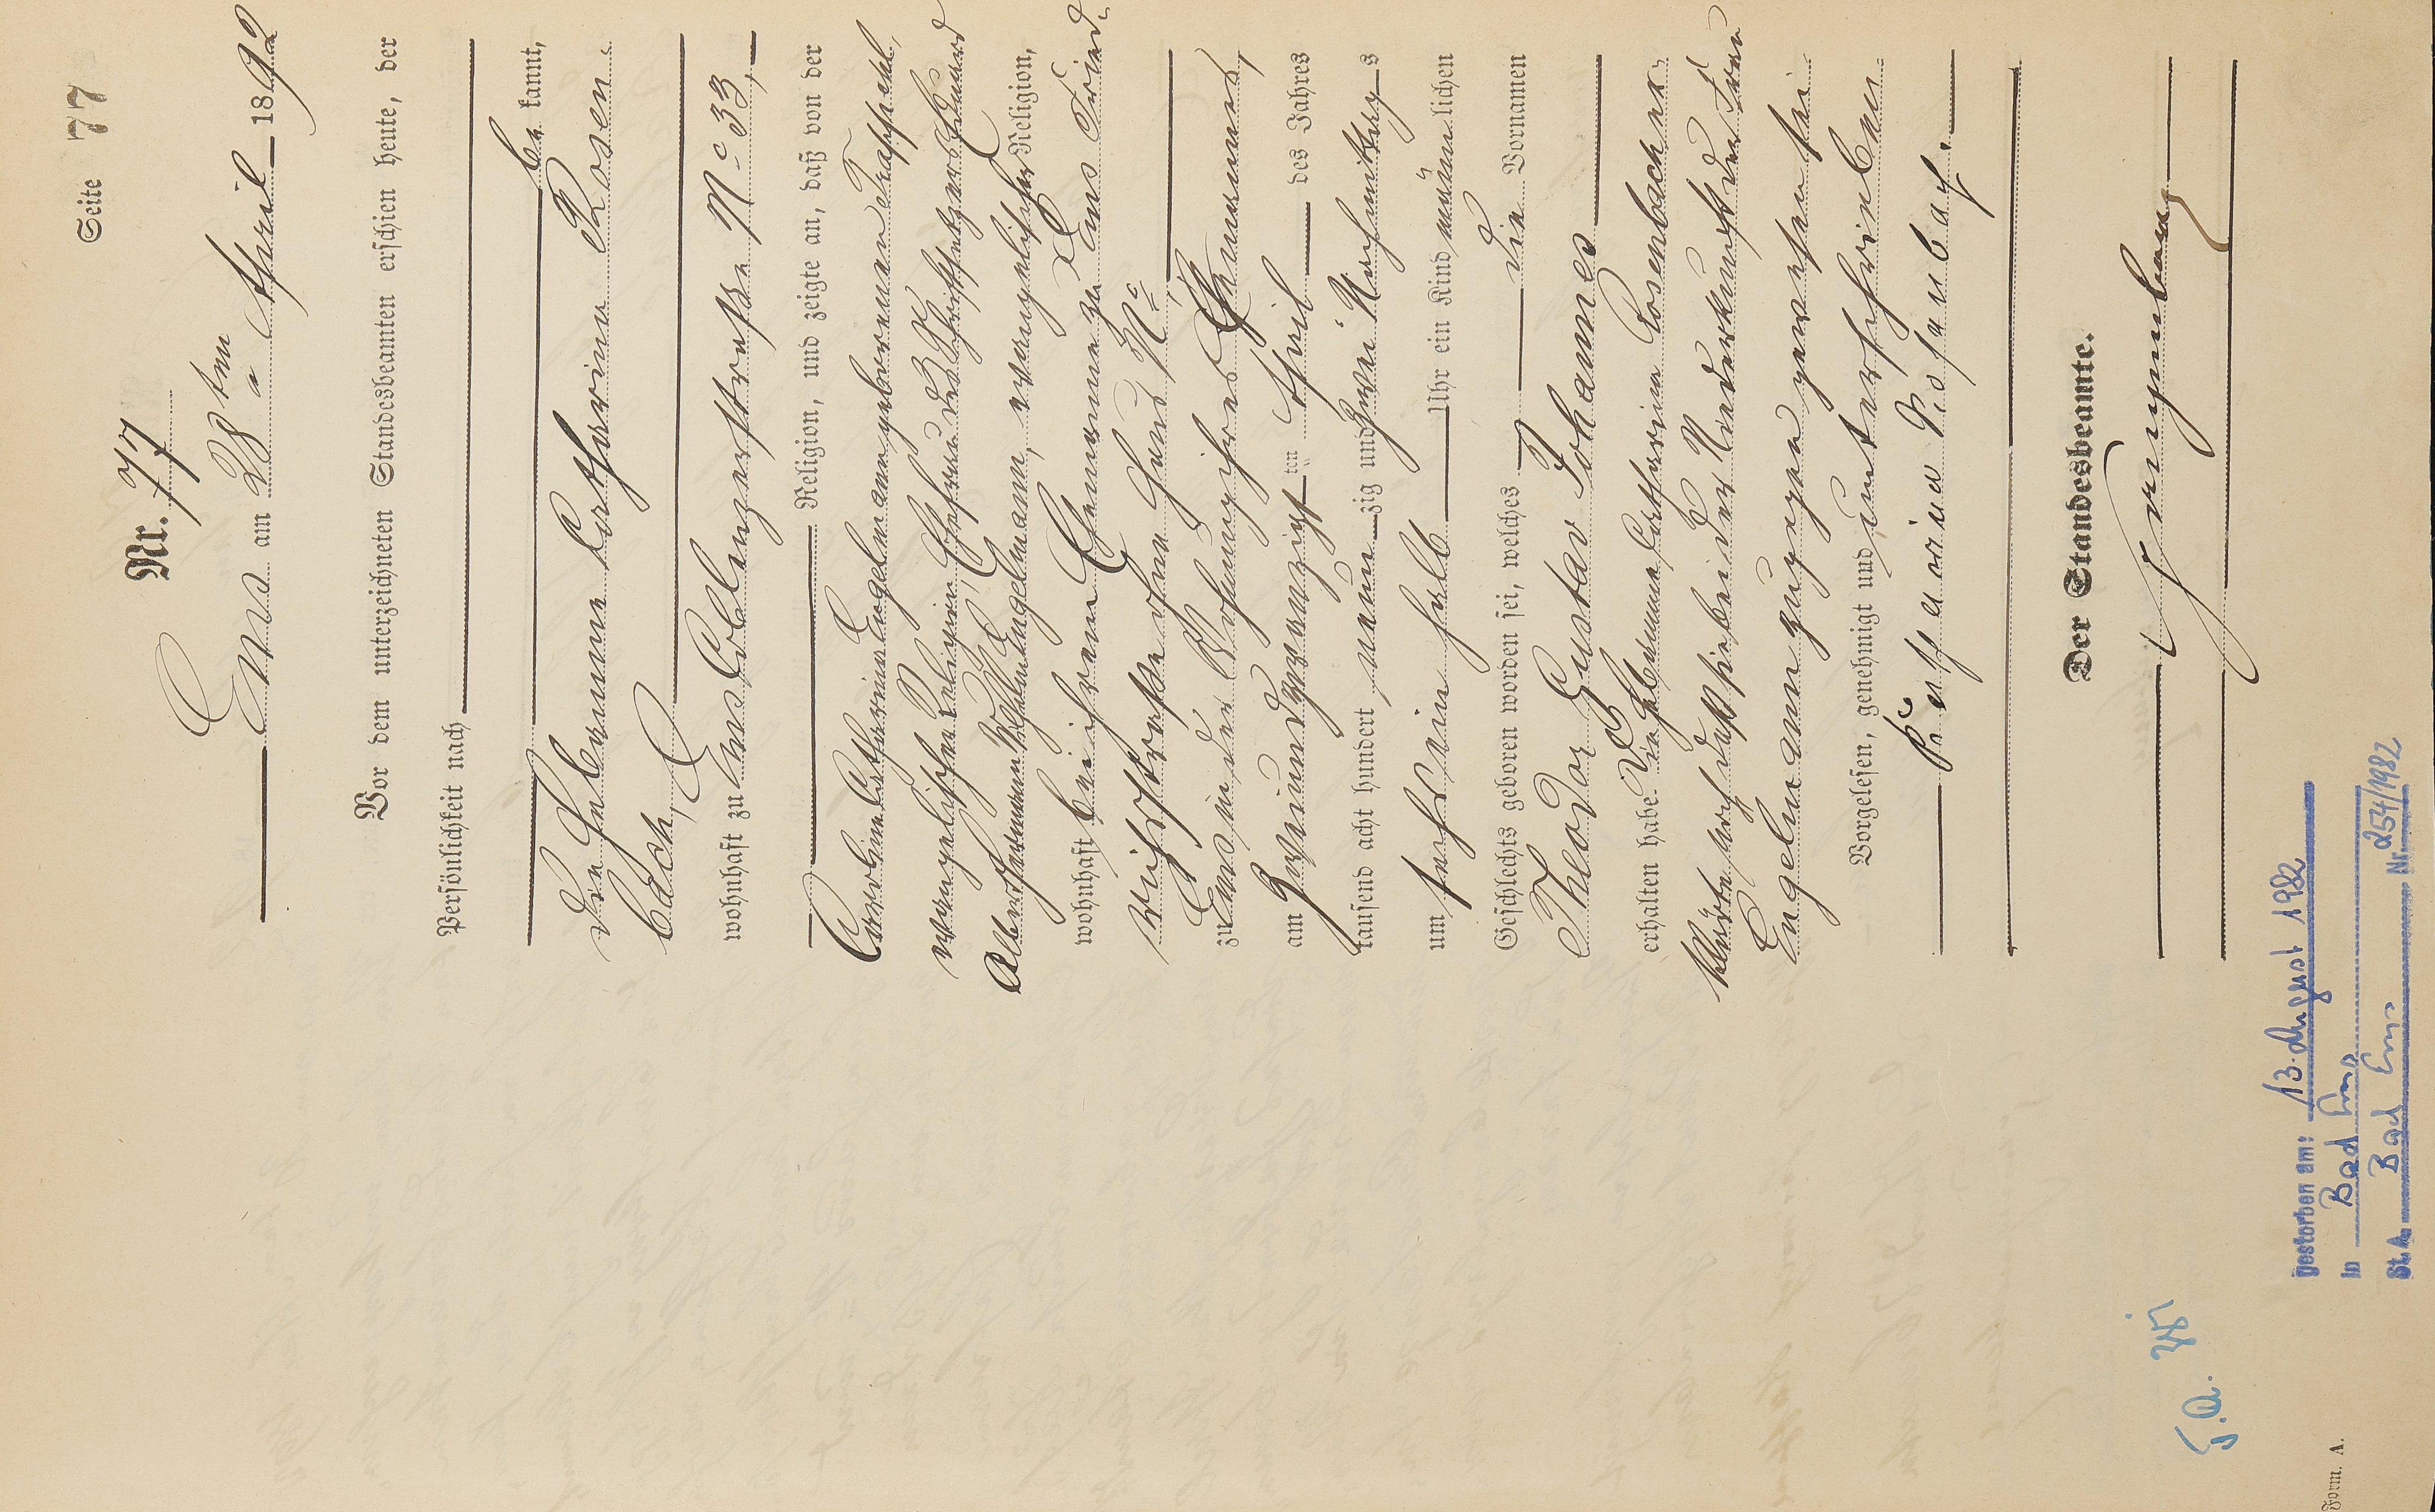 Seite 77
Nr. 77
Ems am 28ten April 1892
Vor dem unterzeichneten Standesbeamten erschien heute, der
Persönlichkeit nach
be kannt,
die Hebamme Catharina Rosen-
bach,
wohnhaft zu Ems Coblenzerstraße No 33,
Religion, und zeigte an, daß von der
Caroline Catharina Engelmann geborenen
evangelischer Religion, Ehefrau des Schriftsetzers Eduard
Albert Hermann Wilhelm Engelmann, evangelischer Religion,
wohnhaft bei ihrem Ehemanne zu Ems Fried-
richstraße ohne Haus No
zu Ems in der Wohnung ihres Ehemannes,
am zweiundzwanzigsten April des Jahres
tausend acht hundert neunzig und zwei Nachmittags
um sechs ein halb Uhr ein Kind männlichen
Geschlechts geboren worden sei, welches die Vornamen
Theodor Gustav Johannes
erhalten habe. Die Hebamme Catharina Rosenbach er-
klärte noch daß sie bei der Niederkunft der Frau
Engelmann zugegen gewesen sei.
Vorgelesen, genehmigt und unterschrieben
Katharina Rosenbach.
Der Standesbeamte.
Gestorben am: 13. August 1982
in Bad Ems
St. A. Bad Ems Nr. 254/1982
Form. A.